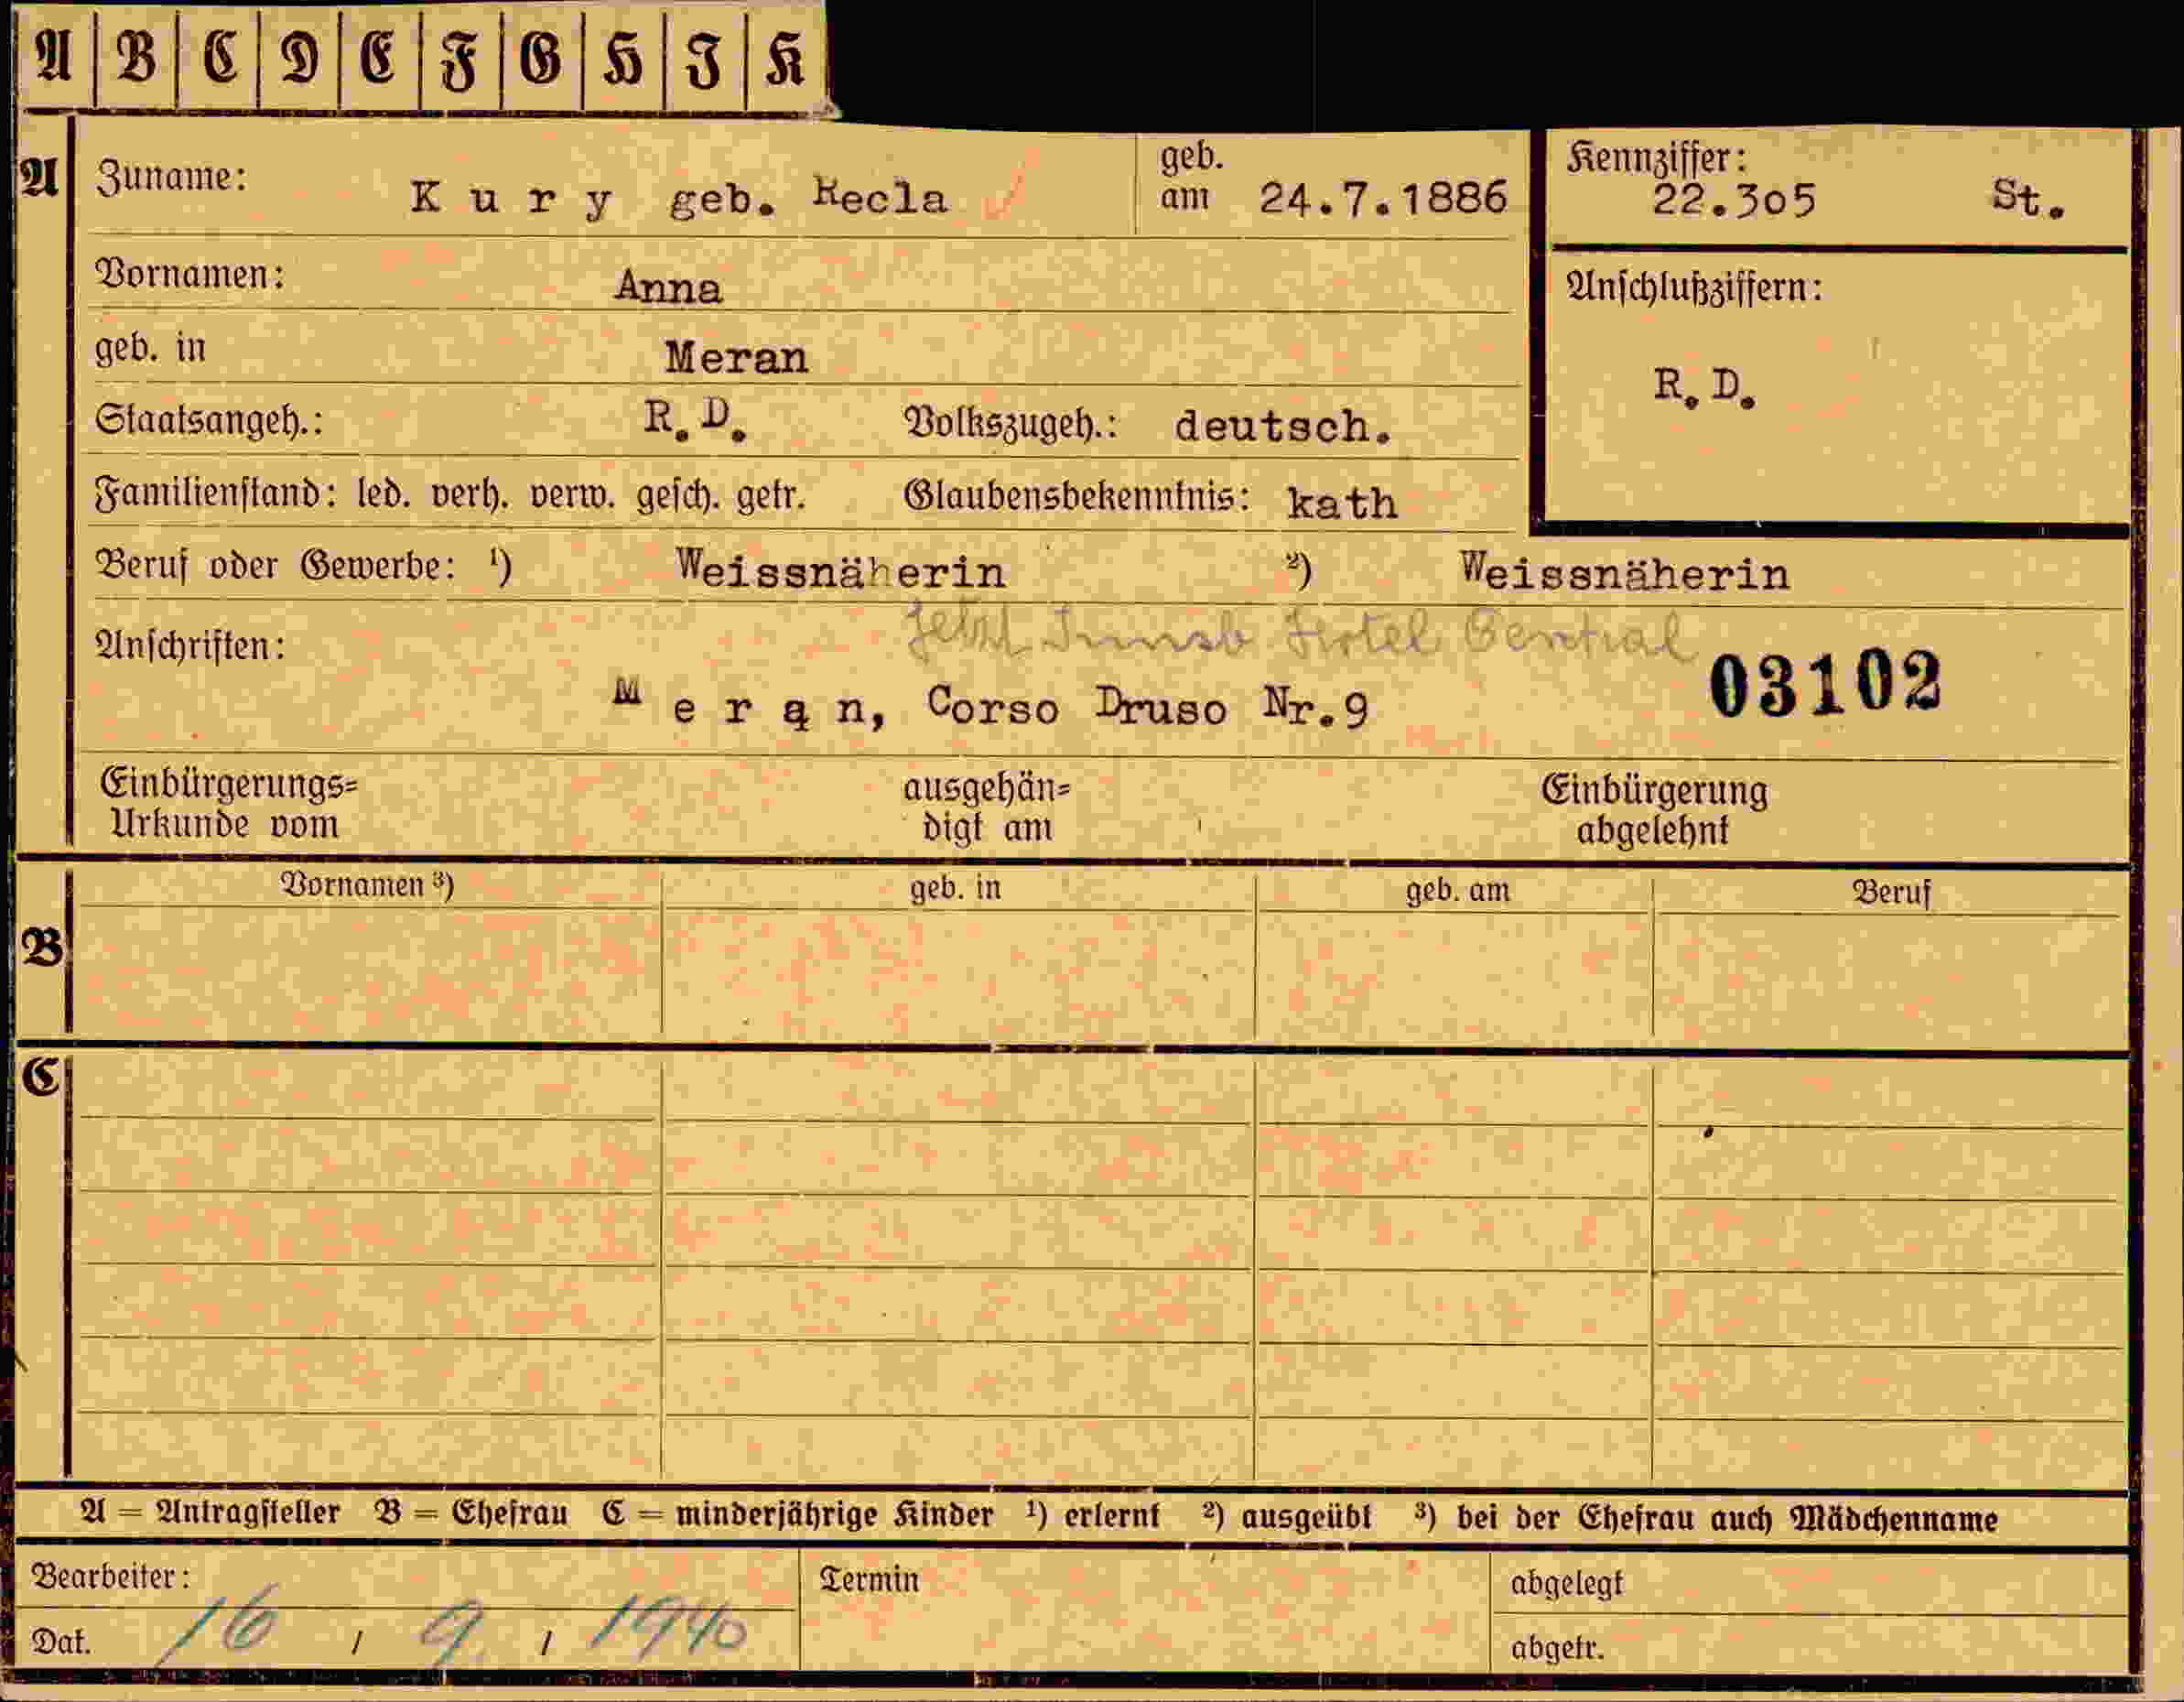 A B C D E F G H I K
A Zuname: Kury geb. Recla geb. am 24.7.1886 Kennziffer: 22.305 St.
Vornamen: Anna Anschlußziffern:
geb. in Meran R.D.
Staatsangeh.: R.D. Volkszugeh.: deutsch.
Familienstand: led. verh. verw. gesch. getr. Glaubensbekenntnis: kath
Beruf oder Gewerbe: ¹) Weissnäherin ²) Weissnäherin
Jetzt Innsb Hotel Central
Anschriften: 03102
Meran, Corso Druso Nr.9
Einbürgerungs= ausgehän= Einbürgerung
Urkunde vom digt am abgelehnt
Vornamen ³) geb. in geb. am Beruf
B
C
A = Antragsteller B = Ehefrau C = minderjährige Kinder ¹) erlernt ²) ausgeübt ³) bei der Ehefrau auch Mädchenname
Bearbeiter: Termin abgelegt
Dat. 16 / 9. / 1940 abgetr.